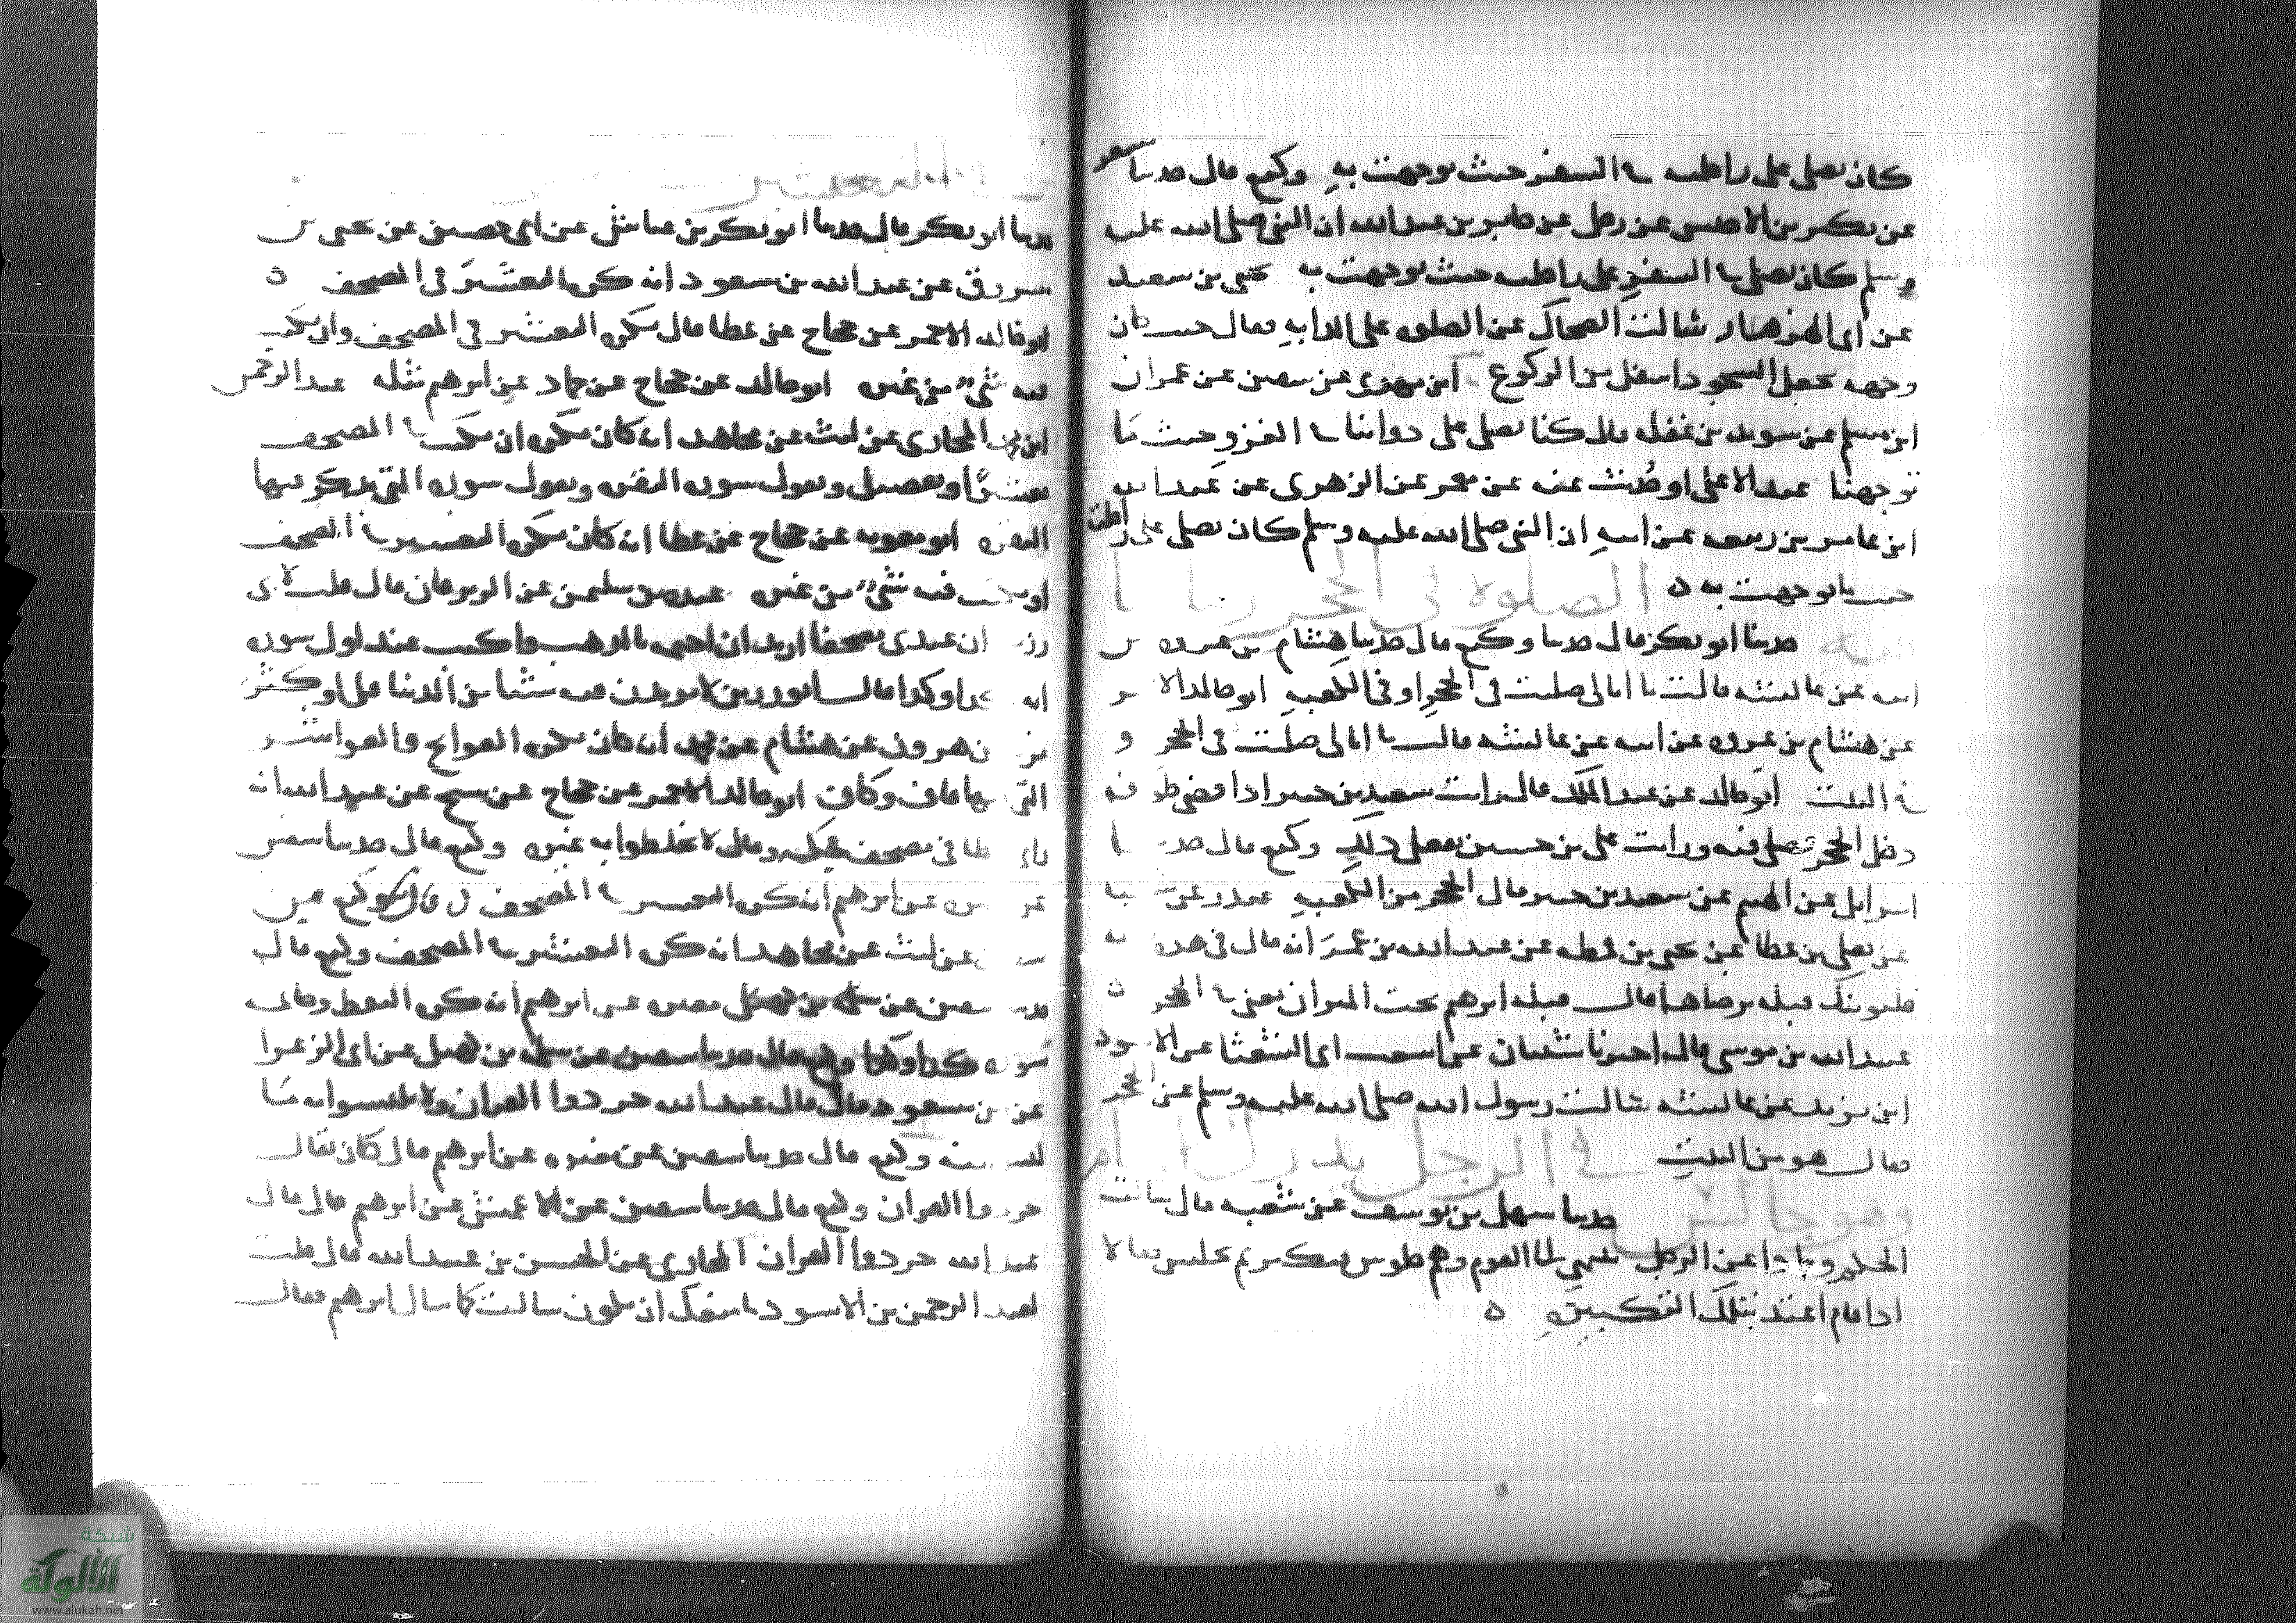 كان يصلي على راحلته في السفر حيث توجهت به وكيع قال حدثنا سفين
عن بكير بن الاخنس عن رجل عن جابر بن عبدالله ان النبي صلى الله عليه
وسلم كان يصلي في السفر على راحلته حيث توجهت به يحيى بن سعيد
عن ابي الهزهاز سالت الضحاك عن الصلوه على الدابه فقال حيث كان
وجهه يجعل السجود اسفل من الركوع ابن مهدي عن سفين عن عمران
ابن مسلم عن سويد بن غفله قال كنا نصلي على دوابنا في الغزو حيث ما
توجهنا عبد الاعلى او حُدثت عنه عن معمر عن الزهري عن عبد الله
ابن عامر بن ربيعه عن ابيه ان النبي صلى الله عليه وسلم كان يصلي على راحلته
حيث ما توجهت به ه
الصلاة في الحجر
حدثنا ابو بكر قال حدثنا وكيع قال حدثنا هشام بن عروه عن
ابيه عن عائشه قالت ما ابالي صليت في الحجر او في الكعبه ابو خالد الاحمر
عن هشام بن عروه عن ابيه عن عائشه قالت ما ابالي صليت في الحجر او
في البيت ابو خالد عن عبد الملك قال رايت سعيد بن جبير اذا قضى طوافه
دخل الحجر فصلى فيه ورايت علي بن حسين يفعل ذلك وكيع قال حدثنا
اسرائيل عن سعيد بن جبير قال الحجر من الكعبه غندر عن شعبة
عن يعلى بن عطا عن يحيى بن قمطه عن عبد الله بن عمر انه قال في هذه الايه
فلنولينك قبله ترضاها قال قبله ابرهيم تحت الميزاب يعني في الحجر ه
عبيد الله بن موسى قال اخبرنا شيبان عن اشعث ابي الشعثا عن الاسود
ابن يزيد عن عائشه سالت رسول الله صلى الله عليه وسلم عن الحجر
فقال هو من البيت
في الرجل
وهو جالس
حدثنا سهل بن يوسف عن شعبه قال سالت
الحكم وحمادا عن الرجل ينتهي الى القوم وهم جلوس فيكبر ثم يجلس فقالا
اذا قام اعتد بتلك التكبيره ه
حدثنا ابو بكر قال حدثنا ابو بكر بن عياش عن ابي حصين عن يحيى عن
مسروق عن عبد الله بن مسعود انه كره التعشير في المصحف ه
ابو خالد الاحمر عن حجاج عن عطا قال يكره التعشير في المصحف وان يكتب
فيه شيء من غيره ابو خالد عن حجاج عن حماد عن ابرهيم مثله عبد الرحمن
ابن محمد المحاربي عن ليث عن مجاهد انه كان يكره ان يكتب في المصحف
تعشيرا او تفصيل ويقول سوره البقره ويقول سوره التي يذكر فيها
البقره ابو معويه عن حجاج عن عطا انه كان يكره التعشير في المصحف
او يكتب فيه شيء من غيره عبده بن سليمن عن الزبرقان قال قلت لابي
رزين ان عندي مصحفا اريد ان اختمه بالذهب واكتب عند اول سوره
ايه كذا وكذا قال ابو رزين لا تزيدن فيه شيئا من الدنيا قل او كثر
يزيد بن هرون عن هشام عن محمد انه كان يكره الفواتح والعواشر
التي فيها قاف وكاف ابو خالد الاحمر عن حجاج عن عبد الله انه
راى خطا في مصحف فحكه وقال لا تخلطوا به غيره وكيع قال حدثنا سفين
عن مغيره عن ابرهيم انه كره التعشير في المصحف وكيع عن
سفين عن ليث عن مجاهد انه كره التعشير في المصحف وكيع قال
حدثنا سفين عن سلمه بن كهيل عن ابرهيم انه كره النقط وخاتمه
سوره كذا وكذا وكيع قال حدثنا سفين عن سلمه بن كهيل عن ابي الزعرا
عن بن مسعود قال قال عبد الله جردوا القران ولا تلبسوا به ما
ليس منه وكيع قال حدثنا سفين عن مغيره عن ابرهيم قال كان يقال
جردوا القران وكيع قال حدثنا سفين عن الاعمش عن ابرهيم قال قال
عبد الله جردوا القران المحاربي عن الحسن بن عبيد الله قال قلت
لعبد الرحمن بن الاسود ما منعك ان تكون سالت كما سال ابرهيم فقال
شبكة
الألوكة
www.alukah.net